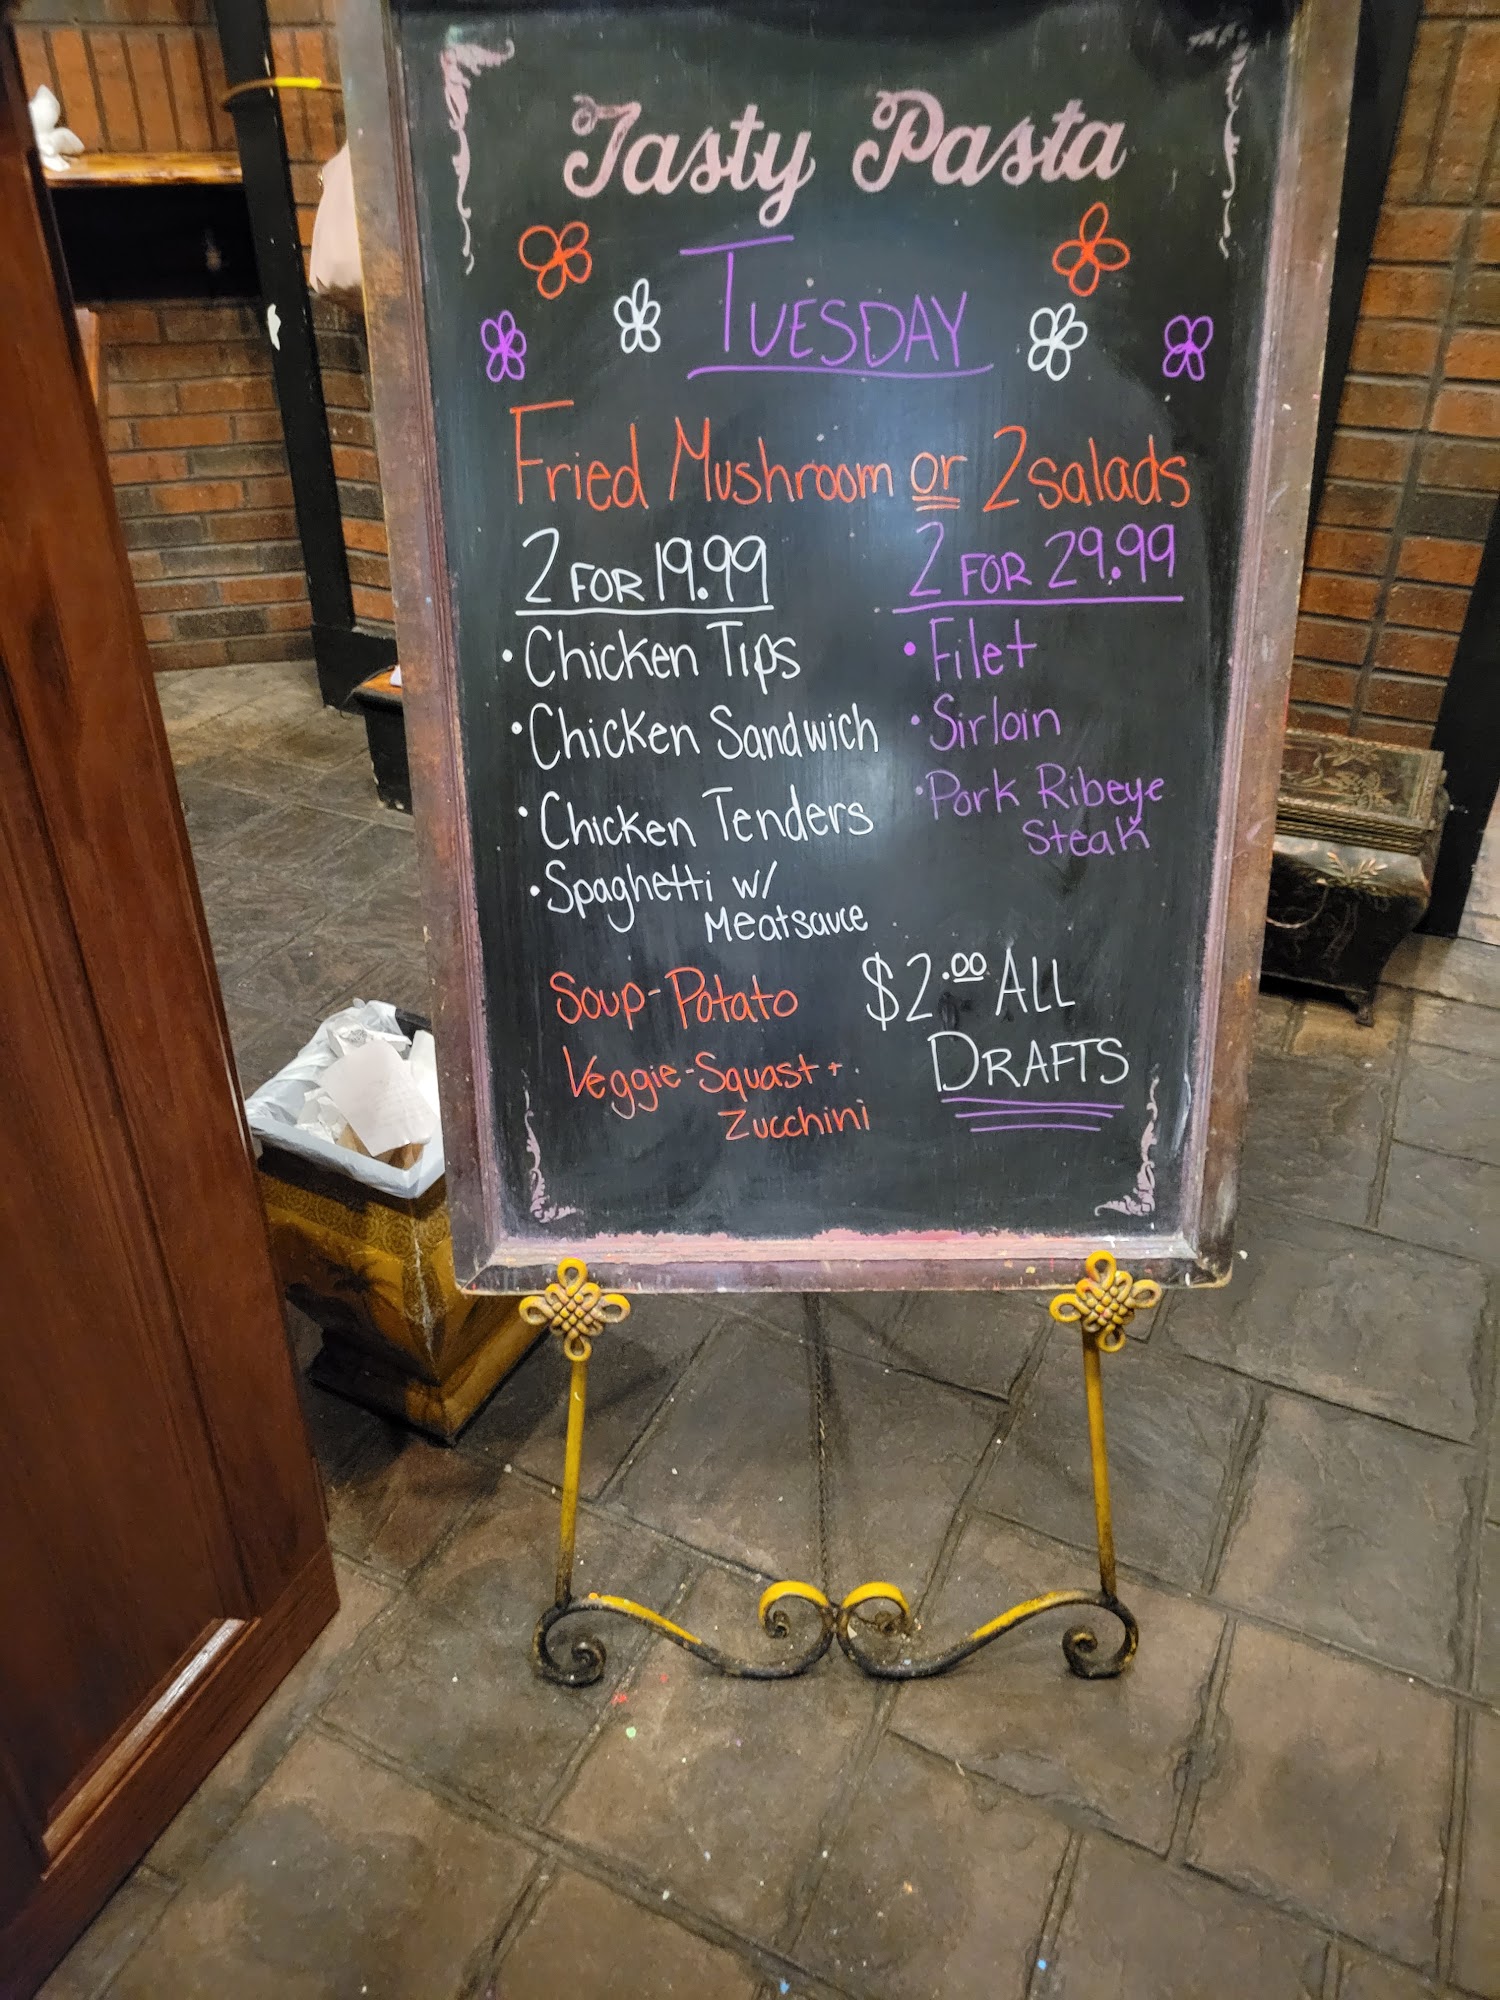 Tasty Pasta
TUESDAY
Fried Mushroom or 2 salads
2 FOR 19.99
• Chicken Tips
• Chicken Sandwich
• Chicken Tenders
• Spaghetti w/
Meatsauce
2 FOR 29.99
• Filet
• Sirloin
• Pork Ribeye
Steak
Soup-Potato
Veggie-Squast +
Zucchini
$2.00 ALL
DRAFTS